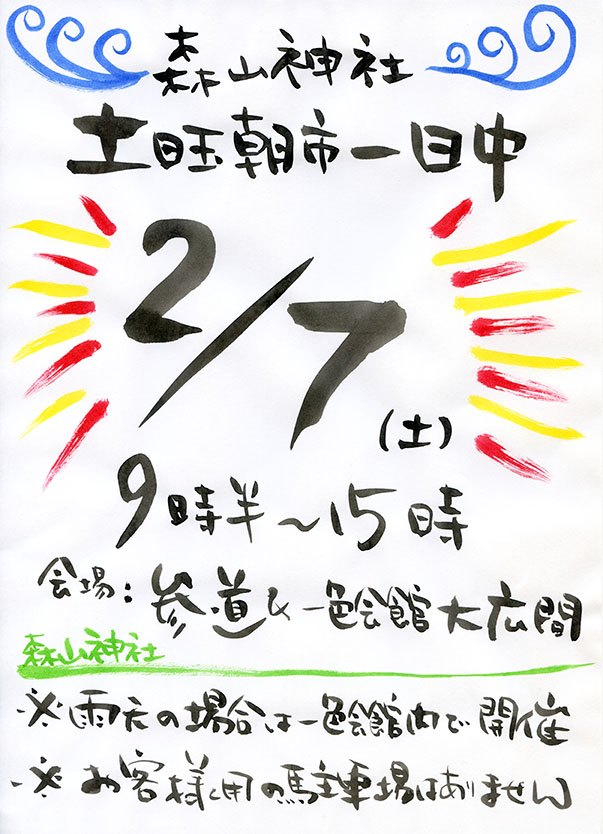 森山神社
土曜朝市一日中
2/7
(土)
9時半～15時
会場：参道&一色会館大広間
森山神社
※雨天の場合は一色会館内で開催
※お客様用の駐車場はありません